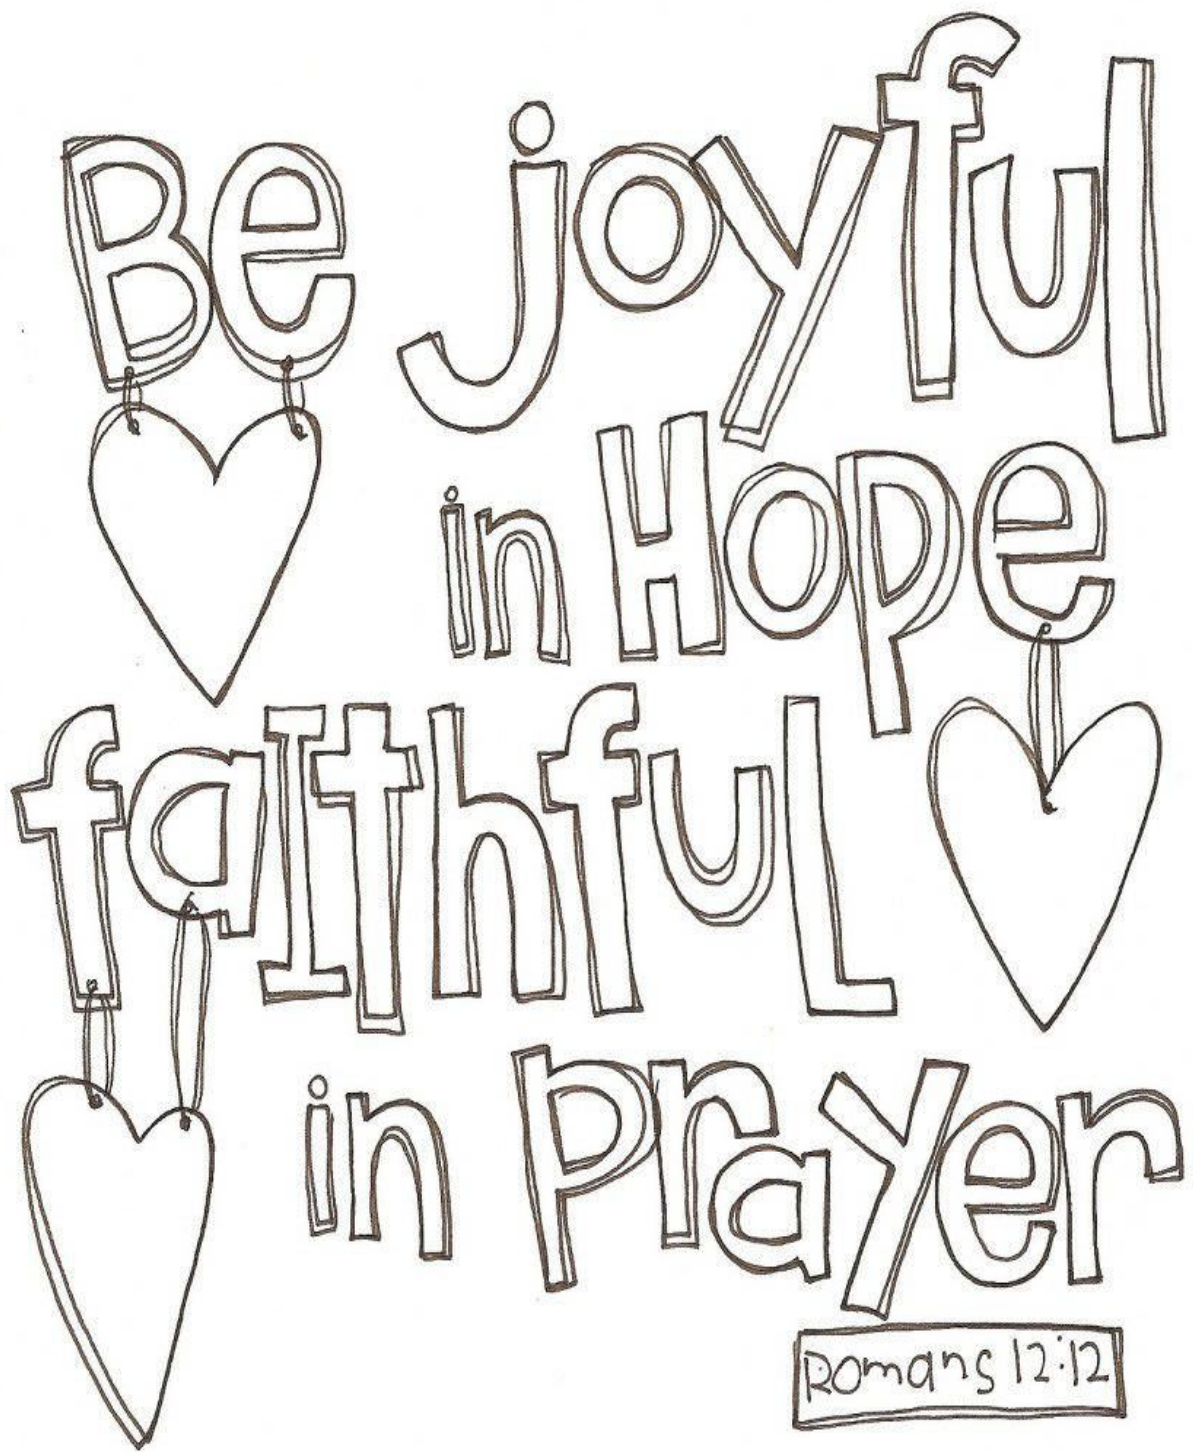 Be joyful
in HOPe
faIthfuL
in PraYer
Romans 12:12